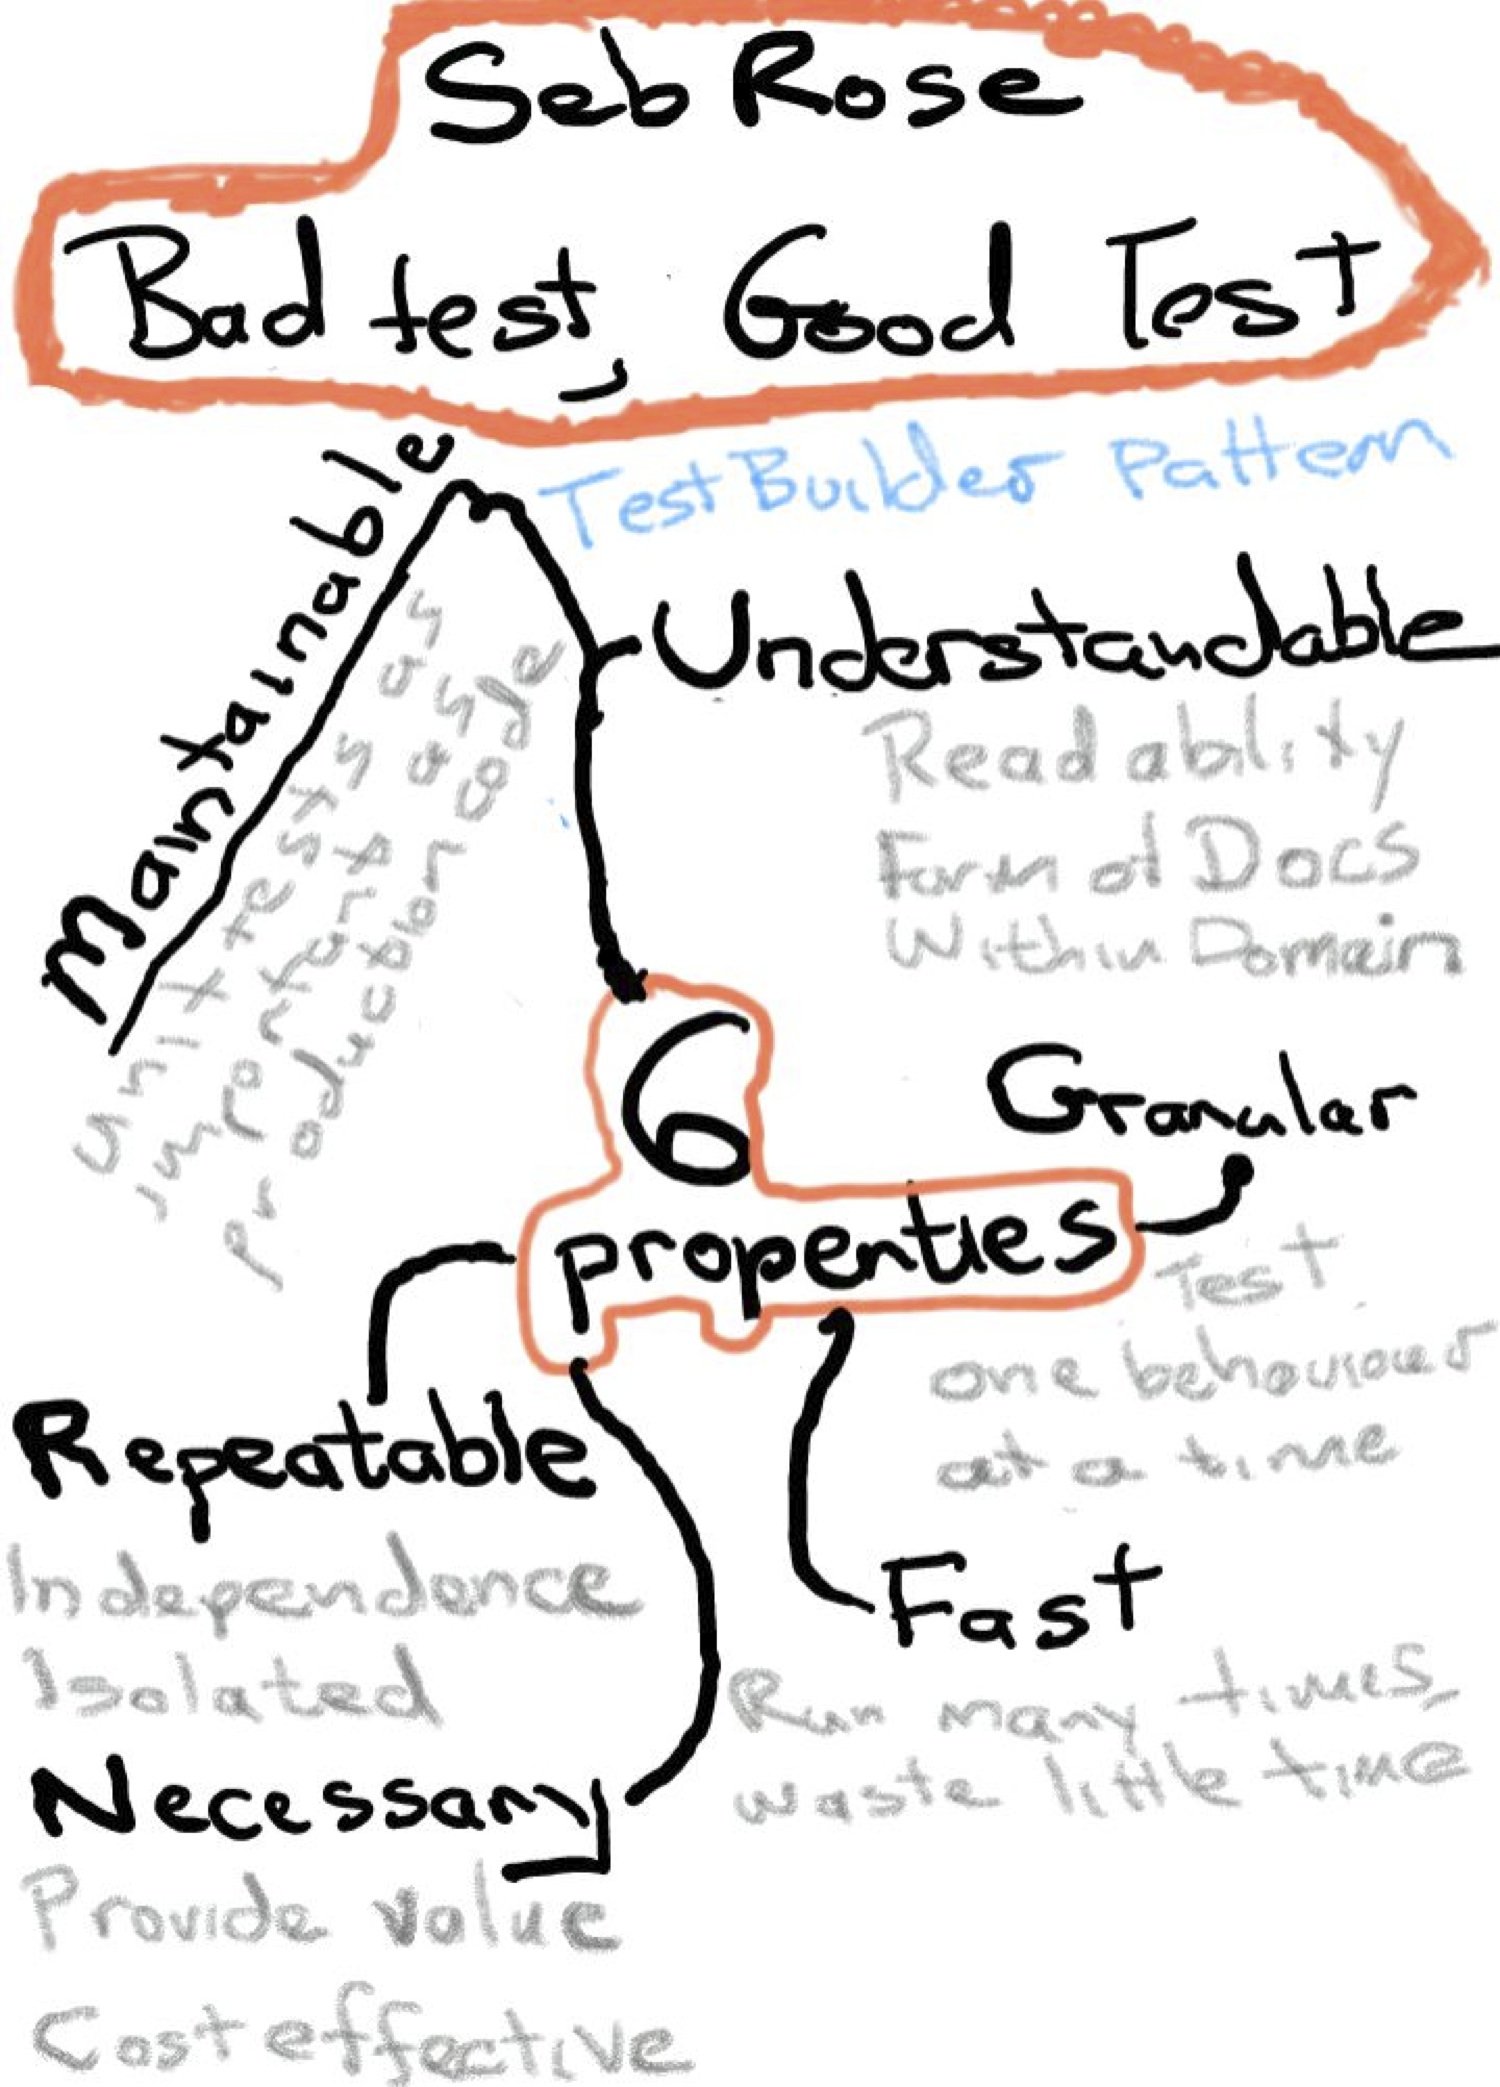 Seb Rose
Bad test, Good Test
TestBuilder Pattern
Maintainable
unit tests as
important as
production code
Understandable
Readability
Form of Docs
Within Domain
6
properties
Granular
Test
one behaviour
at a time
Repeatable
Independence
Isolated
Fast
Run many times,
waste little time
Necessary
Provide value
Cost effective